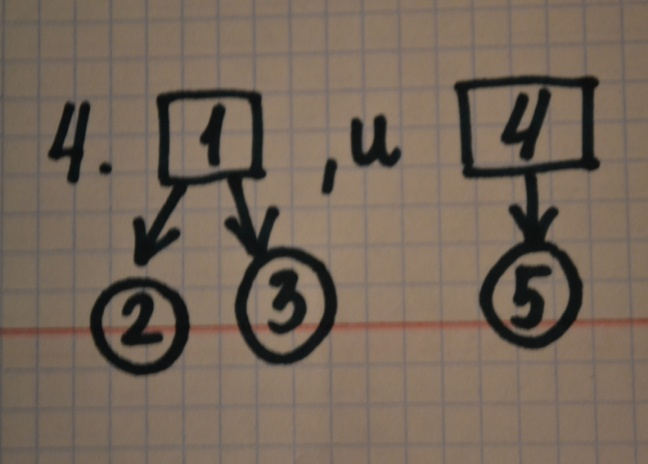 4. 1 , и 4
2 3 5